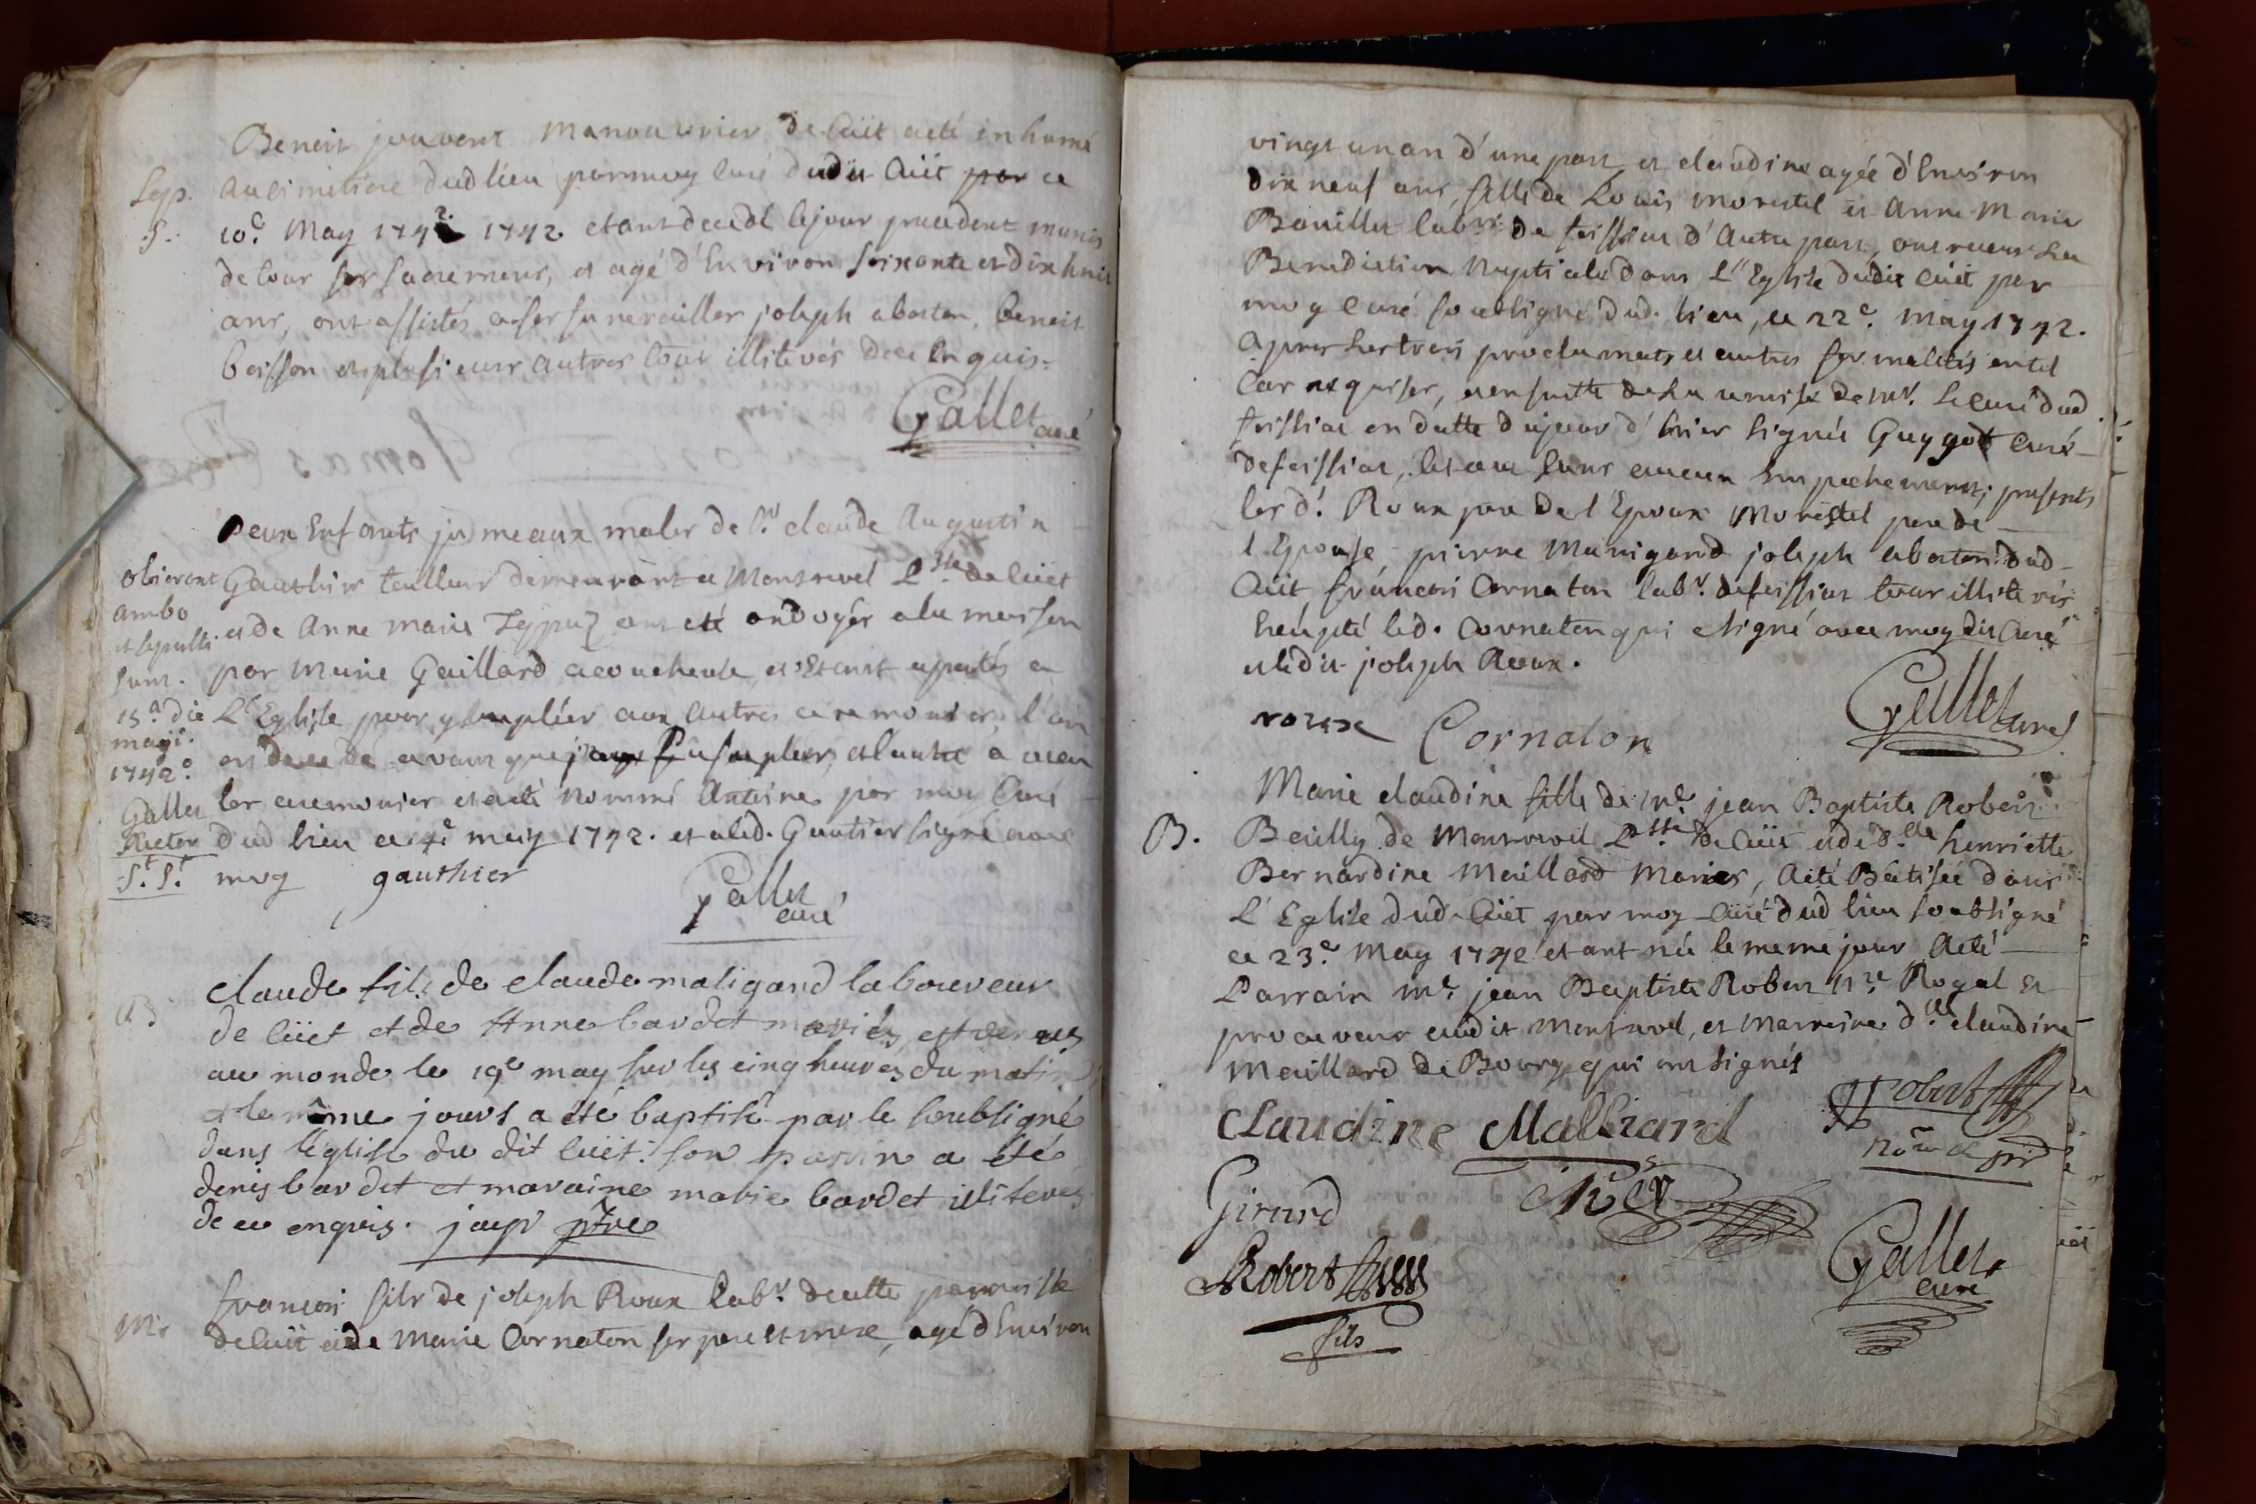 Benoit jouvent Manouvrier de Cüet aeté inhumé
Sep.
au cimetiere dudlieu parmoy curé dudit Cüet par ce
S.
10e. May 1742 1742 etant decedé lejour precedent munis
de tous ses sacremens, et agé d'Environ soixante et dix huit
ans, ont assistés a ses funerailles joseph abaton, benoit
boisson et plusieurs autres tous illiterés de ce enquis.
Gallet curé
Deux Enfants jumeaux males de Sr. claude Augustin
obierunt
Gauthier tailleur demeurant a Montrevel Psse. de Cüet
ambo
et sepulti
et de Anne Marie ont eté ondoyés ala maison
sunt.
par Marie Gaillard acoucheuse, et Etant aportés a
15a. die
L'Eglise pour y supléer aux autres ceremonies, l'un
maji.
est decedé avant que j'aye pû supleer, et l'autre a receu
1742o.
Gallet
les ceremonies et aeté nommé Antoine par moy Curé
Rector
dud lieu ce 4e may 1742. et led. Gautier signé avec
S.t S.t
moy gauthier
Gallet curé
claude fils de claude maligand laboureur
B
de cüet et de Anne bardet mariés, est venus
au monde le 19e may sur les cinq heures du matin
et le même jours a été baptisé par le soubsigné
dans l'eglise du dit cüet: son parin a été
denis bardet et maraine marie bardet illiterés
de ce enquis. jayr ptre
francois fils de joseph Roux labr. decette parroisse
Mr
de Cüet et de Marie Cornaton ses pere et mere, agé d'Environ
vingt un an d'une part, et claudine agée d'Environ
dix neuf ans, fille de Louis Morestel et Anne Marie
Bouillet labrs. de foissiat d'Autre part, ont receus La
Benediction Nuptiale dans L'Eglise dudit cüet par
moy Curé soubsigné dud. lieu, ce 22e. May 1742.
apres les trois proclamats et autres formalités entel
Cas requises, et ensuitte de La remise de Mr. le curé dud
foissiat en datte du jour d'hier signée Guygot Curé
de foissiat, le tout sans aucun Empechement; presents
lesd. Roux pere de l'Epoux Morestel pere de
l'Epouse pierre Manigand joseph abaton dud
Cüit, francois Cornaton labr. de foissiat tous illiterés
Excepté led. Cornaton qui a signé avec moy dit Curé
et ledit joseph Roux.
roux Cornaton
Gallet curé
Marie claudine fille de Me. jean Baptiste Robert
B.
Beuilly de Montrevel Psse. de Cüet et de d.elle henriette
Bernardine Maillard Mariés, aeté Batisée dans
L'Eglise dud. Cüet par moy Curé dud lieu soubsigné
ce 23e. May 1742 etant née le meme jour, aeté
Parrain Me. jean Baptiste Robert Nre. Royal et
procureur audit Montrevel, et Marreine d.elle claudine
Maillard de Bourg qui ont signés
Claudine Malliard
Robert
Girard
Robert
fils
Gallet
curé